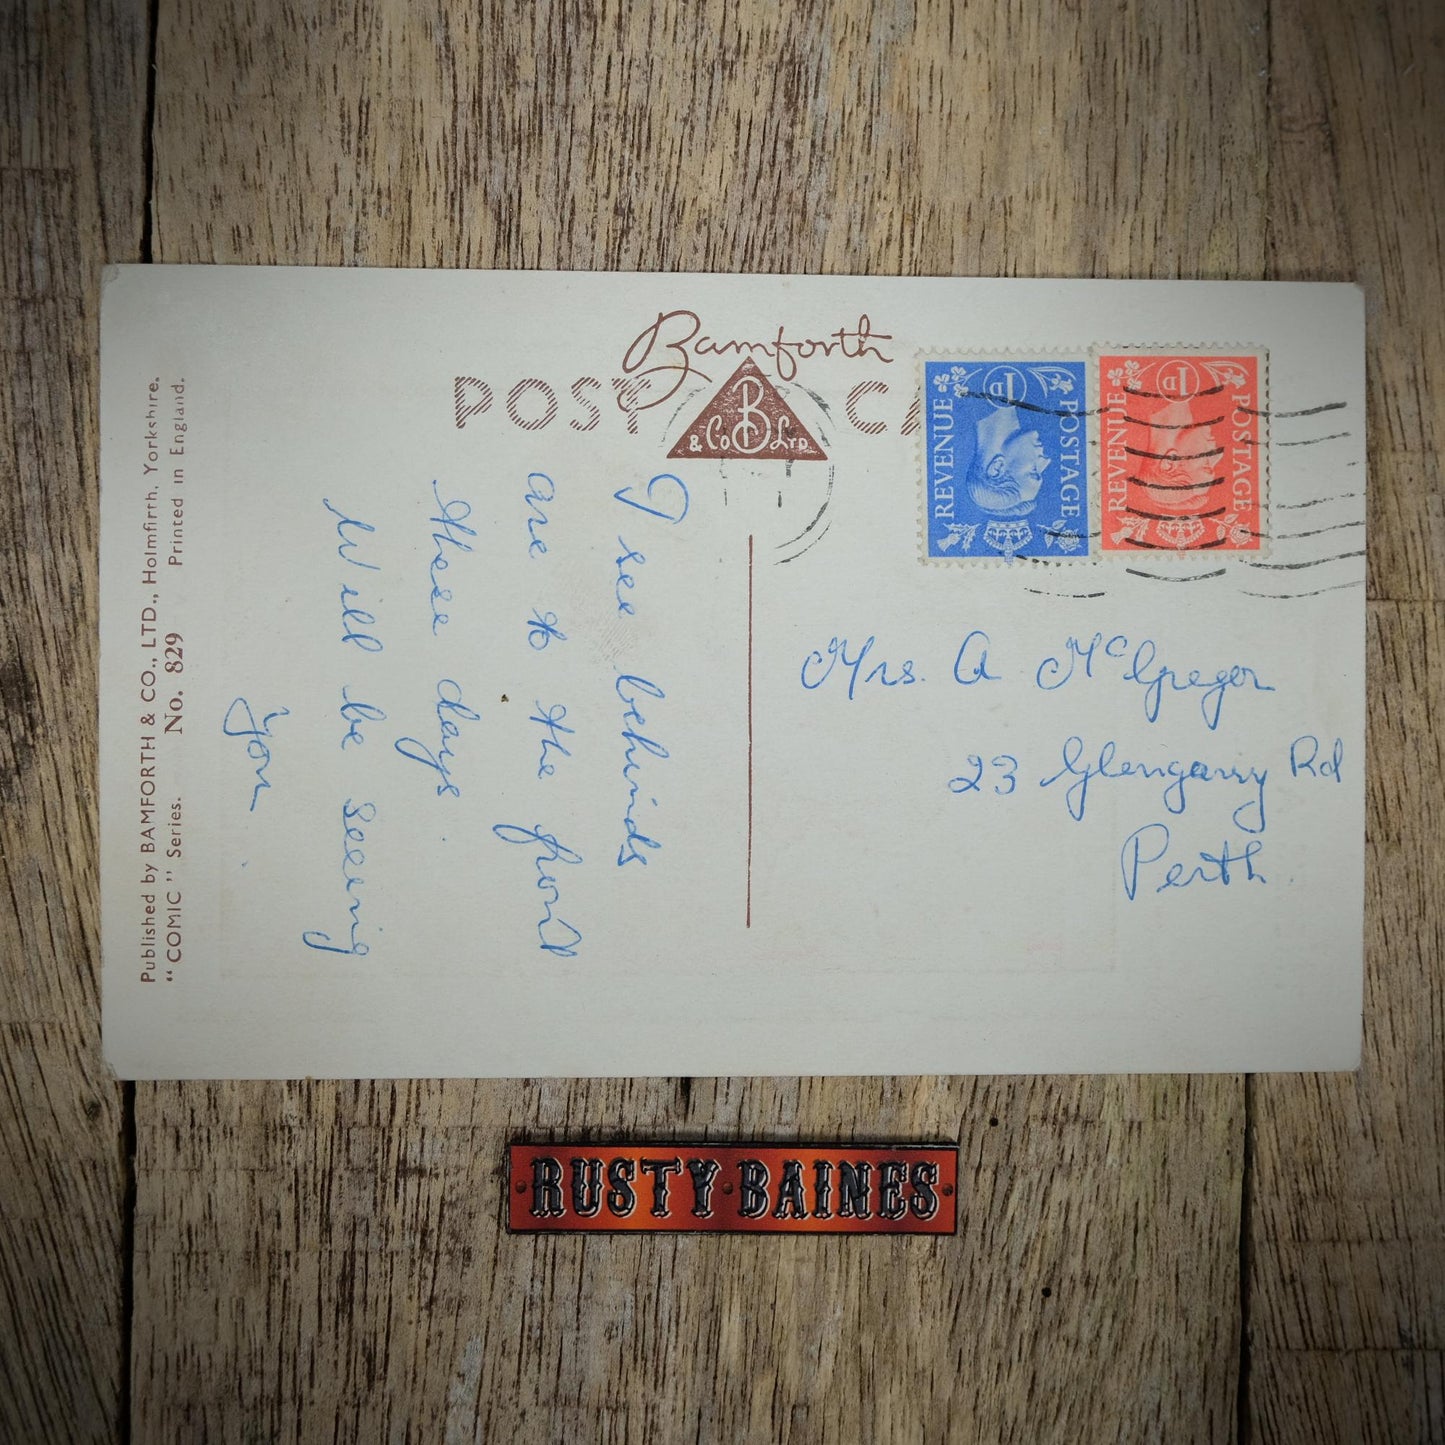 Bamforth
POST CA
& Co. B LTD.
REVENUE 1D POSTAGE
REVENUE 1D POSTAGE
I see behinds
are to the front
these days.
Will be seeing
you.
Mrs. A McGregor
23 Glengarry Rd
Perth
Published by BAMFORTH & CO., LTD., Holmfirth, Yorkshire.
"COMIC" Series. No. 829 Printed in England.
RUSTY·BAINES